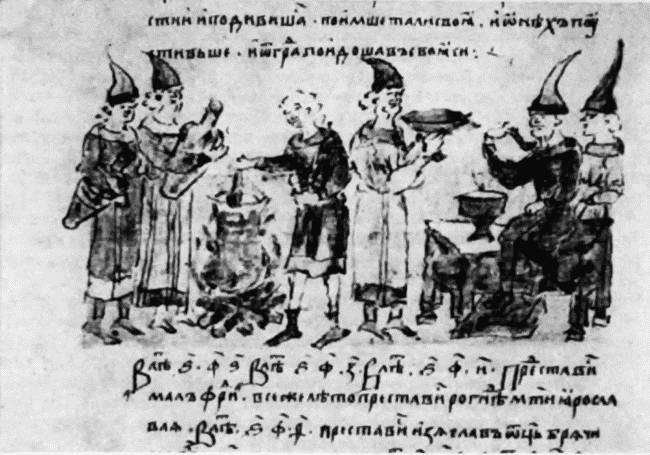 стии и подивиша · поимше тали своѧ · и ѡнѣхъ пꙋ
стивъше · и ѿ гра҃ поидоша въсвоѧси :
В лѣ҃ · ѕ҃ · ф҃ ѕ҃ В лѣ҃ ѕ҃ ф҃ · з҃ · В лѣ҃ · ѕ҃ · ф҃ · и҃ · Преставиⷭ
малъфриⷣ · в се же лѣто преставиⷭ рогнѣⷣ мт҃и ꙗросла
влѧ · В лѣ҃ · ѕ҃ · ф҃ · преставиⷭ изѧславъ ѿць брѧчи